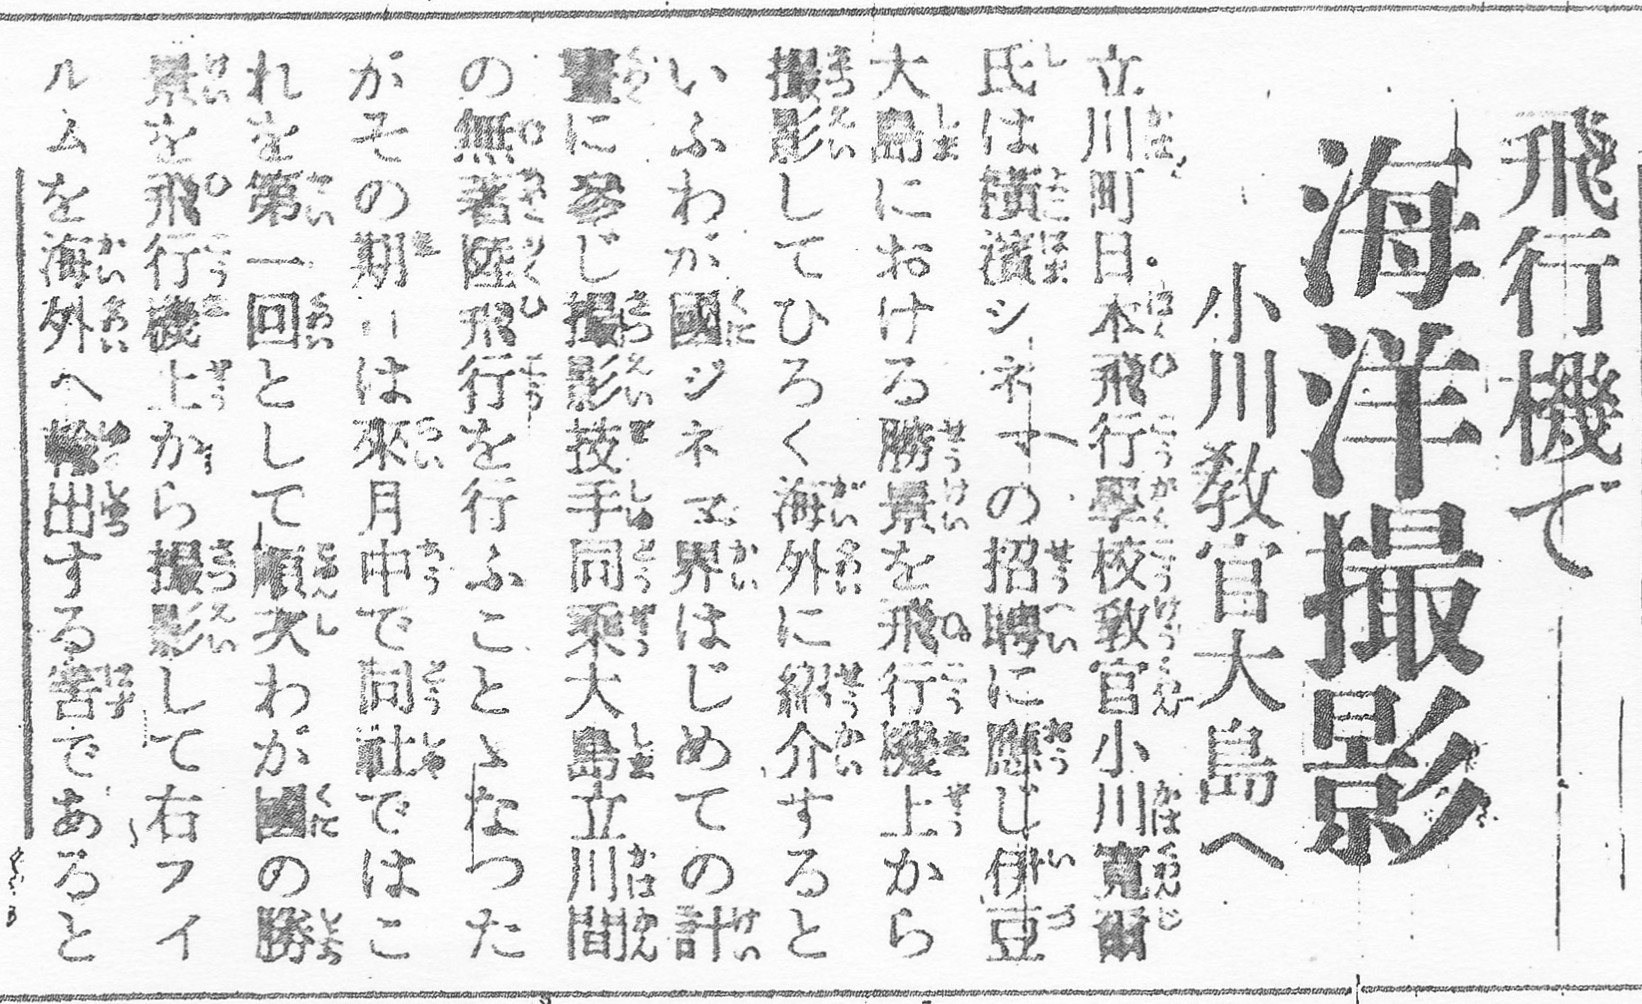 飛行機で
海洋撮影
小川教官大島へ
立川町日本飛行學校教官小川寬爾
氏は横濱シネマの招聘に應じ伊豆
大島における勝景を飛行機上から
撮影してひろく海外に紹介すると
いふわが國シネマ界はじめての計
畫に參じ撮影技手同乘大島立川間
の無着陸飛行を行ふことゝなつた
がその期日は來月中で同社ではこ
れを第一回として順次わが國の勝
景を飛行機上から撮影して右フイ
ルムを海外へ輸出する筈であると